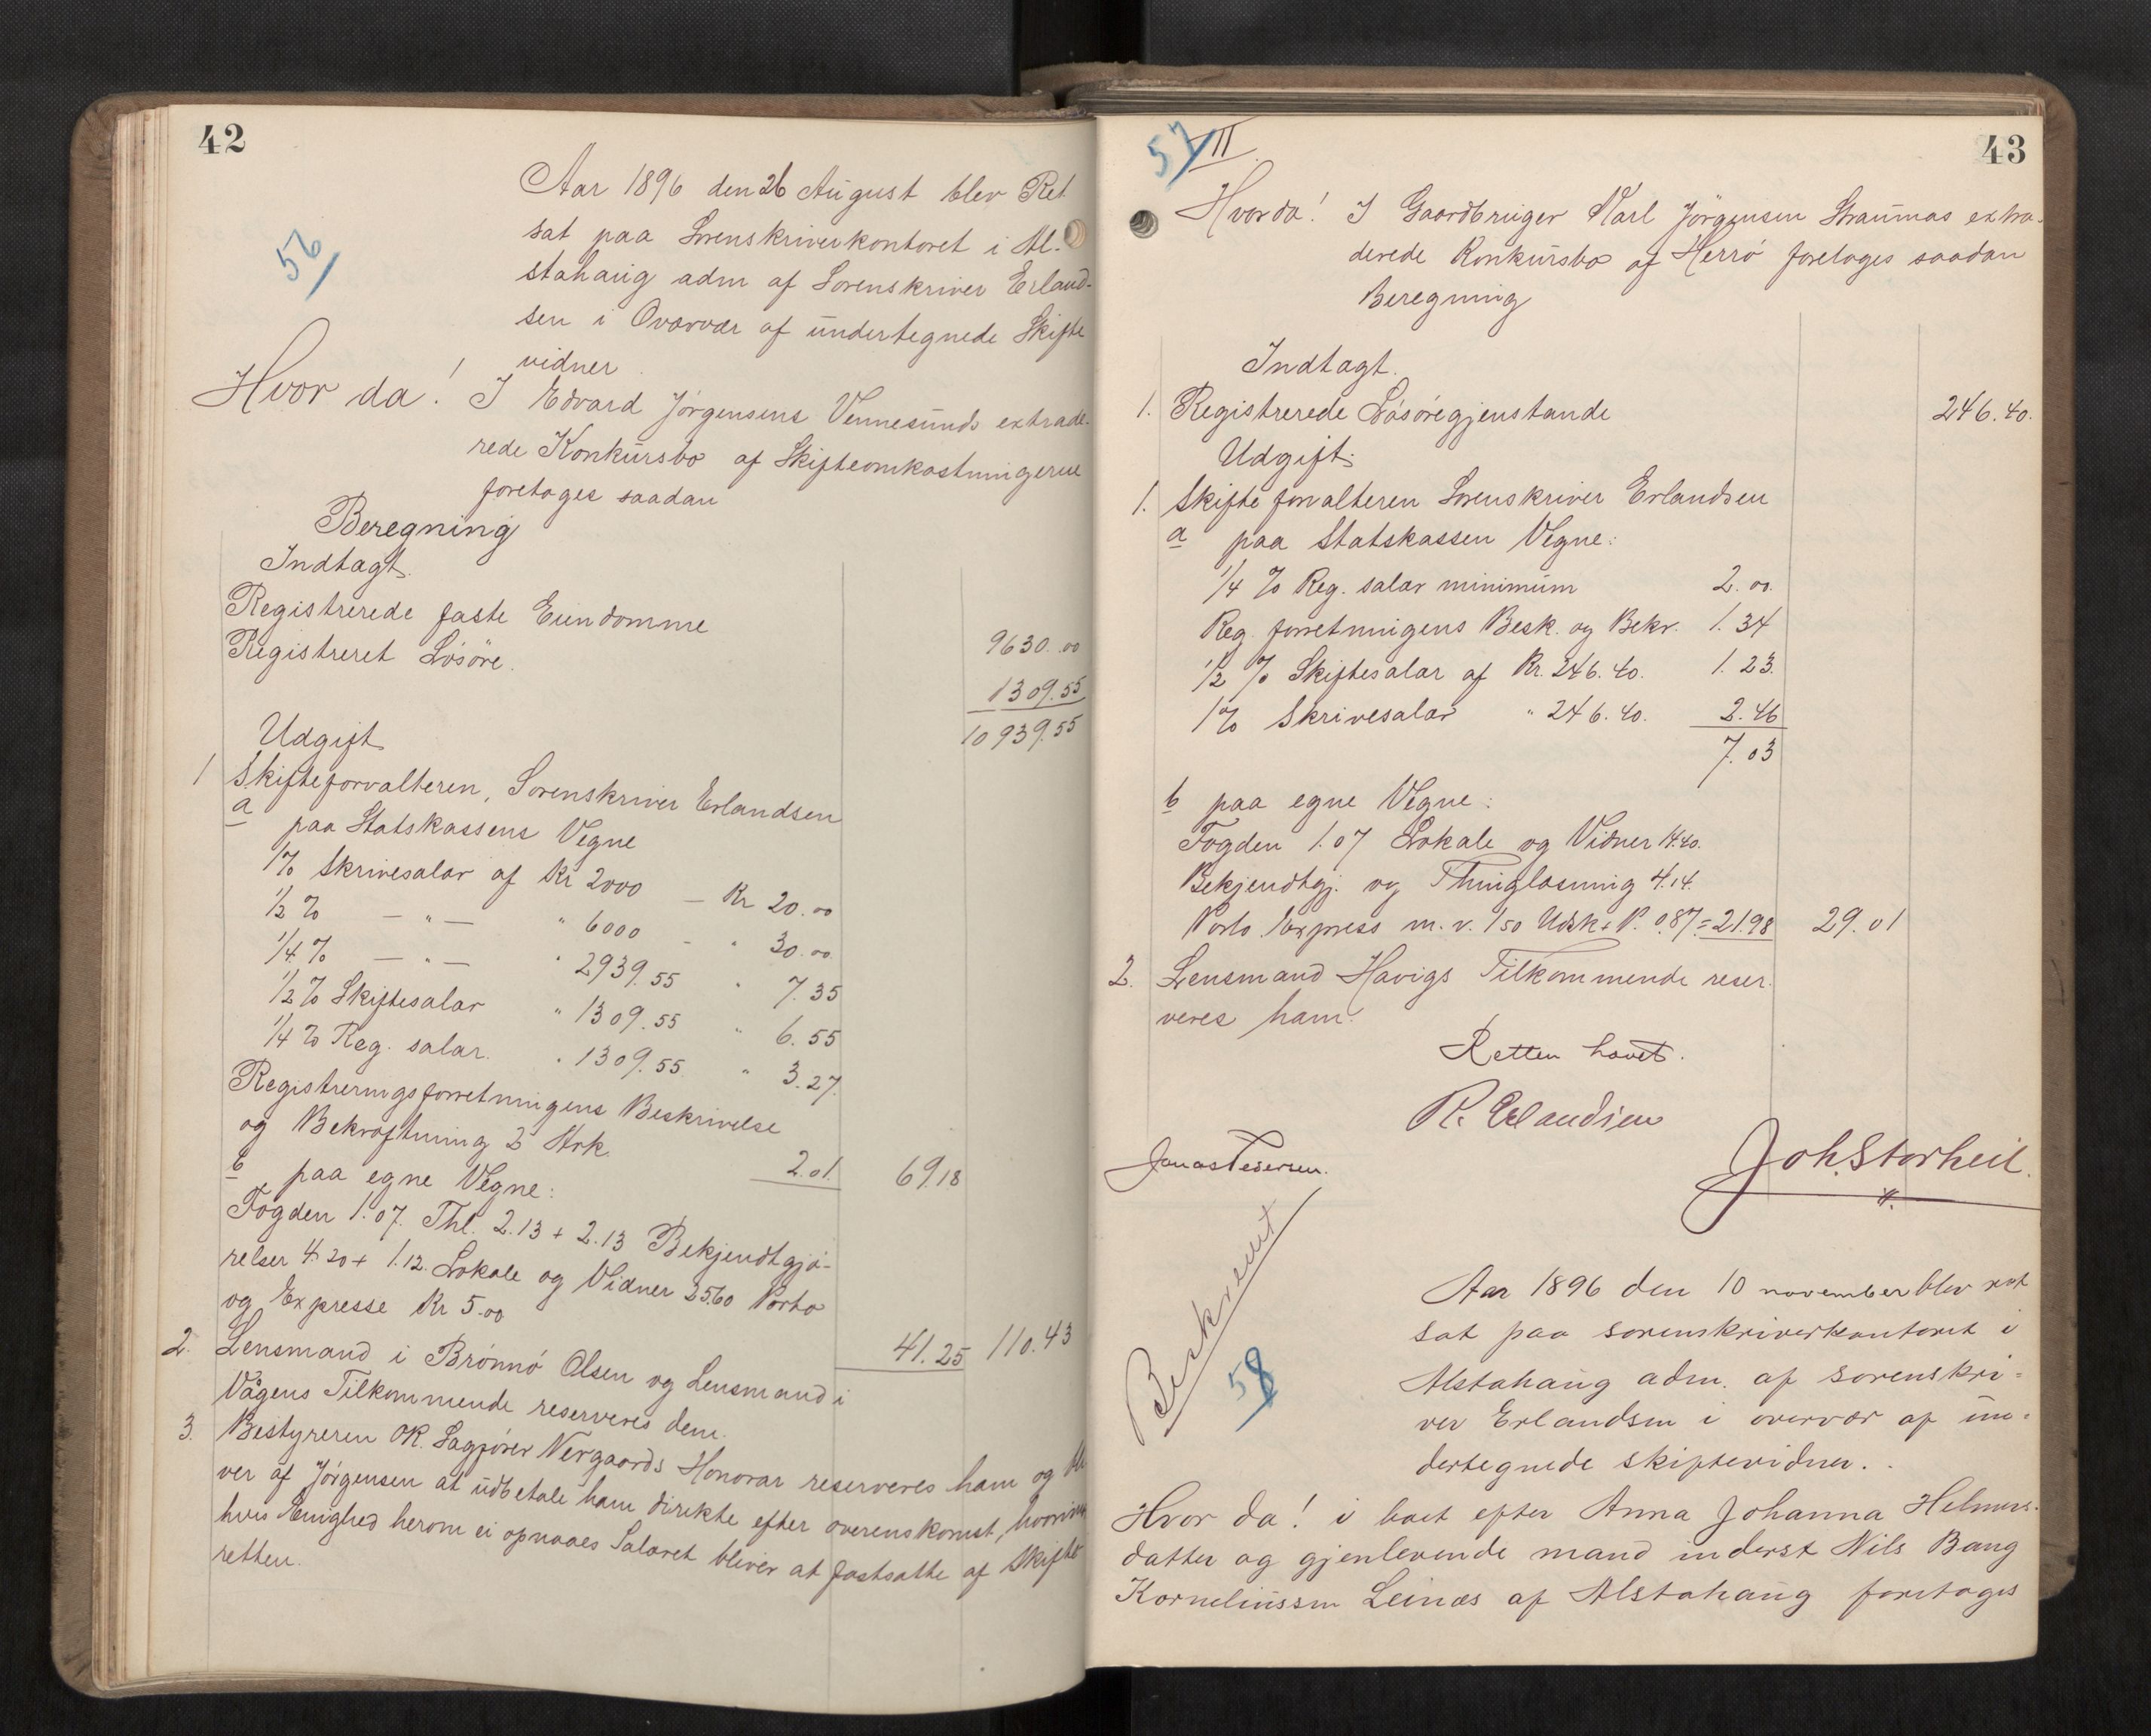 42
56
Aar 1896 den 26 August blev Ret
sat paa Sorenskriverkontoret i Al-
stahaug adm af Sorenskriver Erland-
sen i Overvær af undertegnede Skifte
vidner
Hvor da! I Edvard Jörgensens Vennesunds extrade-
rede Konkursbo af Skifteomkostningerne
foretoges saadan
Beregning
Indtægt.
Registrerede faste Eiendomme 9630.00
Registreret Lösöre. 1309.55
10939.55
Udgift
1 Skifteforvalteren, Sorenskriver Erlandsen
a paa Statskassens Vegne
1% Skrivesalar af Kr 2000 — Kr 20.00
1/2 % — " — " 6000 - " 30.00
1/4 % — " — " 2939.55 " 7.35
1/2 % Skiftesalar " 1309.55 " 6.55
1/4 % Reg. salar. " 1309.55 " 3.27
Registreringsforretningens Beskrivelse
og Bekræftning 2 Ark. 2.01. 69.18
b paa egne Vegne:
Fogden 1.07. Thl. 2.13 + 2.13 Bekjendtgjö-
relser 4.20 + 1.12. Lokale og Vidner 25.60 Porto
og Expresse Kr 5.00 41.25 110.43
2. Lensmand i Brönnö Olsen og Lensmand i
Vågens Tilkommende reserveres dem.
3. Bestyreren OR. Sagförer Nergaards Honorar reserveres ham og
ver af Jörgensen at udbetale ham direkte efter overenskomst,
hvis Enighed herom ei opnaaes Salæret bliver at fastsætte af Skifte
retten.
43
57 II
Hvor da! I Gaardbruger Karl Jörgensen Straumas extra-
derede Konkursbo af Herrö foretoges saadan
Beregning
Indtægt.
1. Registrerede Lösöregjenstande 246.40.
Udgift:
1. Skifteforvalteren Sorenskriver Erlandsen
a paa Statskassen Vegne:
1/4 % Reg. salar minimum 2.00.
Reg. forretningens Besk. og Bekr. 1.34
1/2 % Skiftesalar af Kr. 246.40. 1.23.
1% Skrivesalar " 246.40. 2.46
7.03
b paa egne Vegne:
Fogden 1.07 Lokale og Vidner 14.40.
Bekjendtgj. og Thinglæsning 4.14.
Porto Express m. v. 1.50 Udsk. + P. 0.87 = 21.98 29.01
2. Lensmand Havigs Tilkommende reser-
veres ham.
Retten hævet.
R. Erlandsen
Jonas Pedersen.
Joh. Storheil.
Beskrevet
58
Aar 1896 den 10 november blev ret
sat paa sorenskriverkontoret i
Alstahaug adm. af sorenskri-
ver Erlandsen i overvær af un-
dertegnede skiftevidner.
Hvor da! i boet efter Anna Johanna Helmers-
datter og gjenlevende mand inderst Nils Bang
Korneliussen Leinæs af Alstahaug foretoges